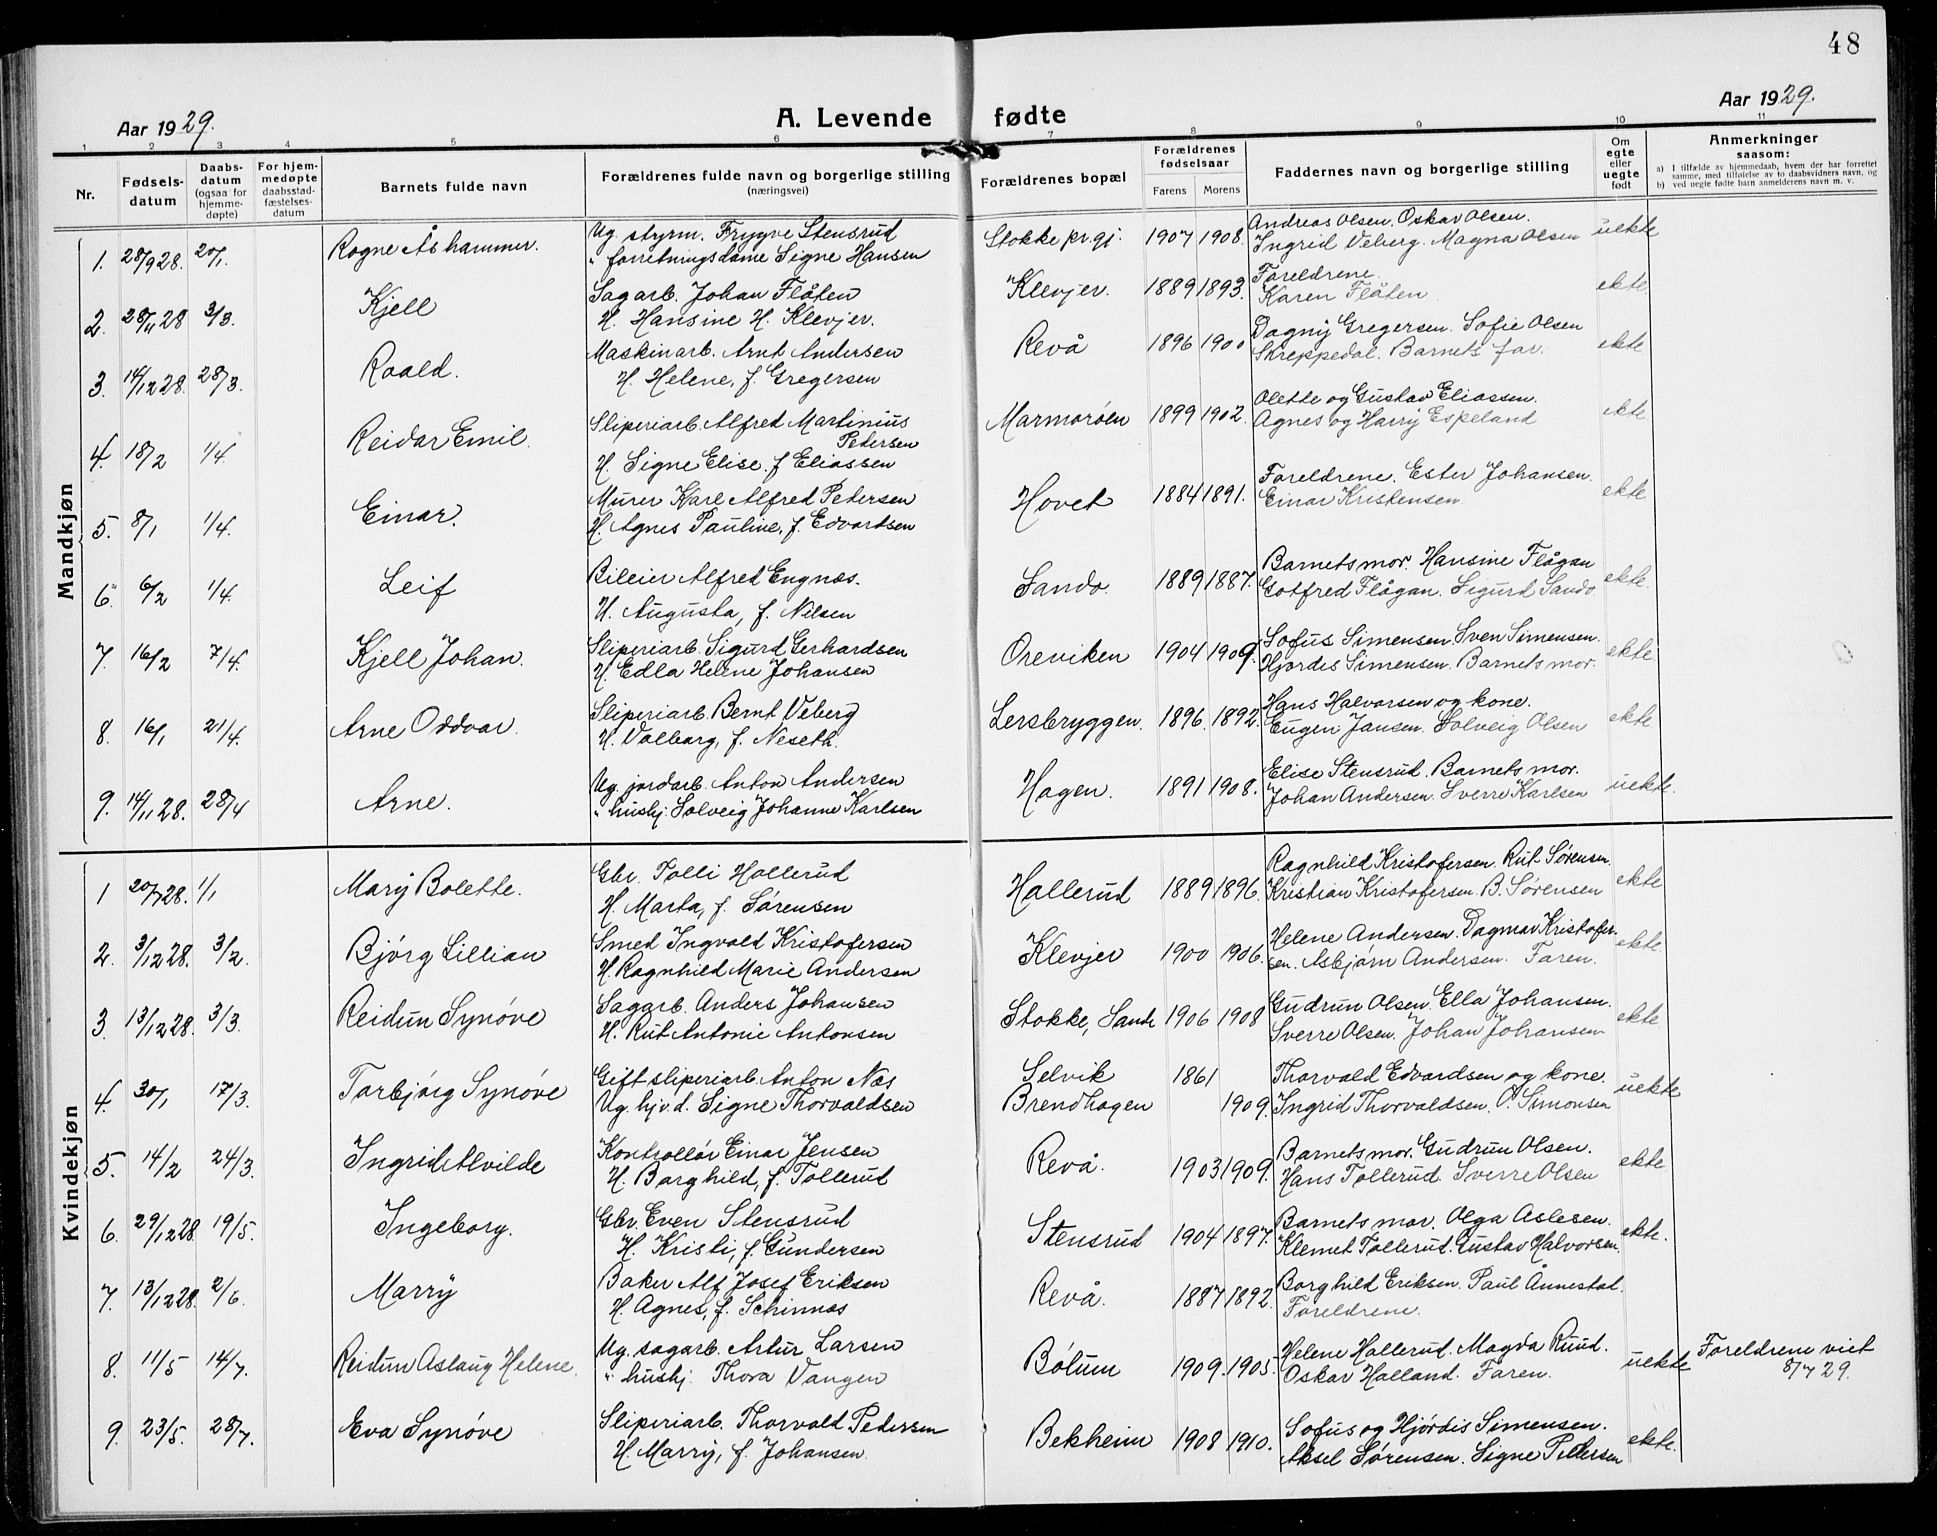 48
Aar 1929.
A. Levende fødte
Aar 1929.
1 2 3 4 5 6 7 8 9 10 11
Nr.
Fødsels-
datum
Daabs-
datum
(ogsaa for
hjemme-
døpte)
For hjem-
medøpte
daabsstad-
fæstelses-
datum
Barnets fulde navn
Forældrenes fulde navn og borgerlige stilling
(næringsvei)
Forældrenes bopæl
Forældrenes
fødselsaar
Farens Morens
Faddernes navn og borgerlige stilling
Om
egte
eller
uegte
født
Anmerkninger
saasom:
a) I tilfælde av hjemmedaab, hvem der har forrettet
samme, med tilføielse av to daabsvidners navn, og
b) ved uegte fødte barn anmelderens navn m. v.
Mandkjøn
1. 28/9 28. 20/1. Rogne Åshammer. Ug. styrm. Trygve Stensrud Stokke pr. gj. 1907 1908. Andreas Olsen. Oskar Olsen. uekte
" forretningsdame Signe Hansen Ingrid Veberg. Magna Olsen
2. 28/11 28 3/3. Kjell Sagarb. Johan Flåten Klevjer. 1889 1893. Foreldrene. ekte
H. Hansine H. Klevjer. Karen Flåten
3. 14/12 28. 28/3. Roald. Maskinarb. Arnt Andersen Revå 1896 1900 Dagny Gregersen. Sofie Olsen ekte
H. Helene, f. Gregersen Skreppedal. Barnets far.
4. 18/2 1/4. Reidar Emil. Sliperiarb. Alfred Martinius Marmorøen 1899 1902. Olette og Gustav Eliassen. ekte
Pedersen Agnes og Harry Espeland
H. Signe Elise. f Eliassen
5. 8/1 1/4. Einar. Murer Karl Alfred Petersen Hovet 1884 1891. Foreldrene. Ester Johansen. ekte
H. Agnes Pauline, f. Edvardsen Einar Kristensen.
6. 6/2 1/4. Leif Bileier Alfred Engnæs. Sando. 1889 1887. Barnets mor. Hansine Flågan ekte.
H. Augusta, f. Nilsen Gotfred Flågan. Sigurd Sando.
7. 16/2 7/4. Kjell Johan. Sliperiarb. Sigurd Gerhardsen Oreviken 1904 1909. Sofus Simensen. Sven Simensen. ekte
H. Edla Helene Johansen Hjordis Simensen. Barnets mor.
8. 16/1 21/4. Arne Oddvar. Sliperiarb. Bernt Veberg Lersbryggen. 1896. 1892. Hans Halvorsen og kone. ekte
H. Valborg, f. Neseth. Eugen Jansen. Solveig Olsen
9. 14/11 28. 28/4 Arne. Ug. jordarb. Anton Andersen Hagen. 1891 1908. Elise Stensrud. Barnets mor. uekte.
" hushj. Solveig Johanne Karlsen Johan Andersen. Sverre Karlsen
Kvindekjøn
1 20/7 28. 1/1 Mary Bolette. Gbr. Tolli Hallerud Hallerud 1889 1896. Ragnhild Kristofersen. Rut Sørensen. ekte
H. Marta, f. Sørensen Kristian Kristofersen. B. Sørensen
2. 3/12 28. 3/2. Bjørg Lillian Smed Ingvald Kristofersen Klevjer 1900 1906. Helene Andersen. Dagmar Kristofer- ekte
H. Ragnhild Marie Andersen sen. Asbjørn Andersen. Faren.
3. 13/12 28. 3/3. Reidun Synøve Sagarb. Anders Johansen Stokke, Sande 1906 1908 Gudrun Olsen. Ella Johansen. ekte
H. Rut Antonie Antonsen Sverre Olsen. Johan Johansen
4. 30/1 17/3. Torbjørg Synøve Gift sliperiarb. Anton Næs Selvik 1861 Thorvald Edvardsen og kone. uekte
Ug. hjv.d. Signe Thorvaldsen Brendhagen 1909. Ingrid Thorvaldsen. O. Simonsen
5. 14/2 24/3. Ingrid Alvilde Kontrollør Einar Jensen Revå. 1903 1909. Barnets mor. Gudrun Olsen. ekte
H. Borghild, f. Tollerud Hans Tollerud. Sverre Olsen
6. 29/12 28 19/5. Ingeborg. Gbr. Even Stensrud Stensrud 1904 1897. Barnets mor. Olga Aslesen. ekte.
H. Kristi, f. Gundersen Klemet Tollerud. Gustav Halvorsen.
7. 13/12 28. 2/6. Marry Baker Alf Josef Eriksen Revå. 1887 1892. Borghild Eriksen. Paul Ånnestad.
H. Agnes, f. Schinnæs Foreldrene.
8. 11/5 14/7. Reidun Aslaug Helene. Ug. sagarb. Artur Larsen Bølum 1909. 1905. Helene Hallerud. Magda Ruud. uekte Foreldrene viet
" hushj. Thora Vangen Oskar Halland. Faren. 8/7 29.
9. 23/5. 28/7. Eva Synøve Sliperiarb. Thorvald Pedersen Bekheim 1908 1910. Sofus og Hjørdis Simensen. ekte.
H. Marry, f. Johansen. Aksel Sørensen. Signe Pedersen